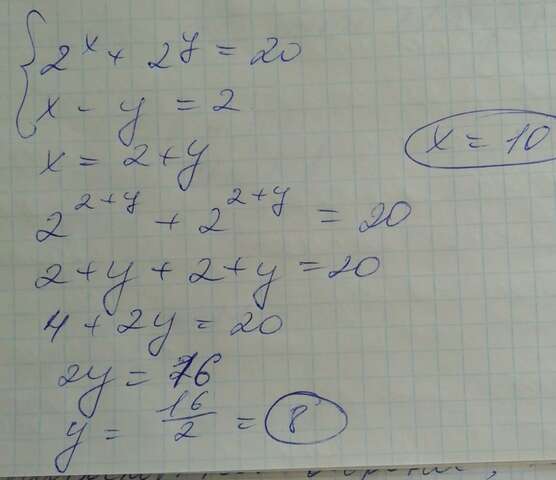 2^x + 2^y = 20
x - y = 2
x = 2+y
x = 10
2^{2+y} + 2^{2+y} = 20
2+y+2+y=20
4+2y=20
2y = 16
y = 16/2 = 8